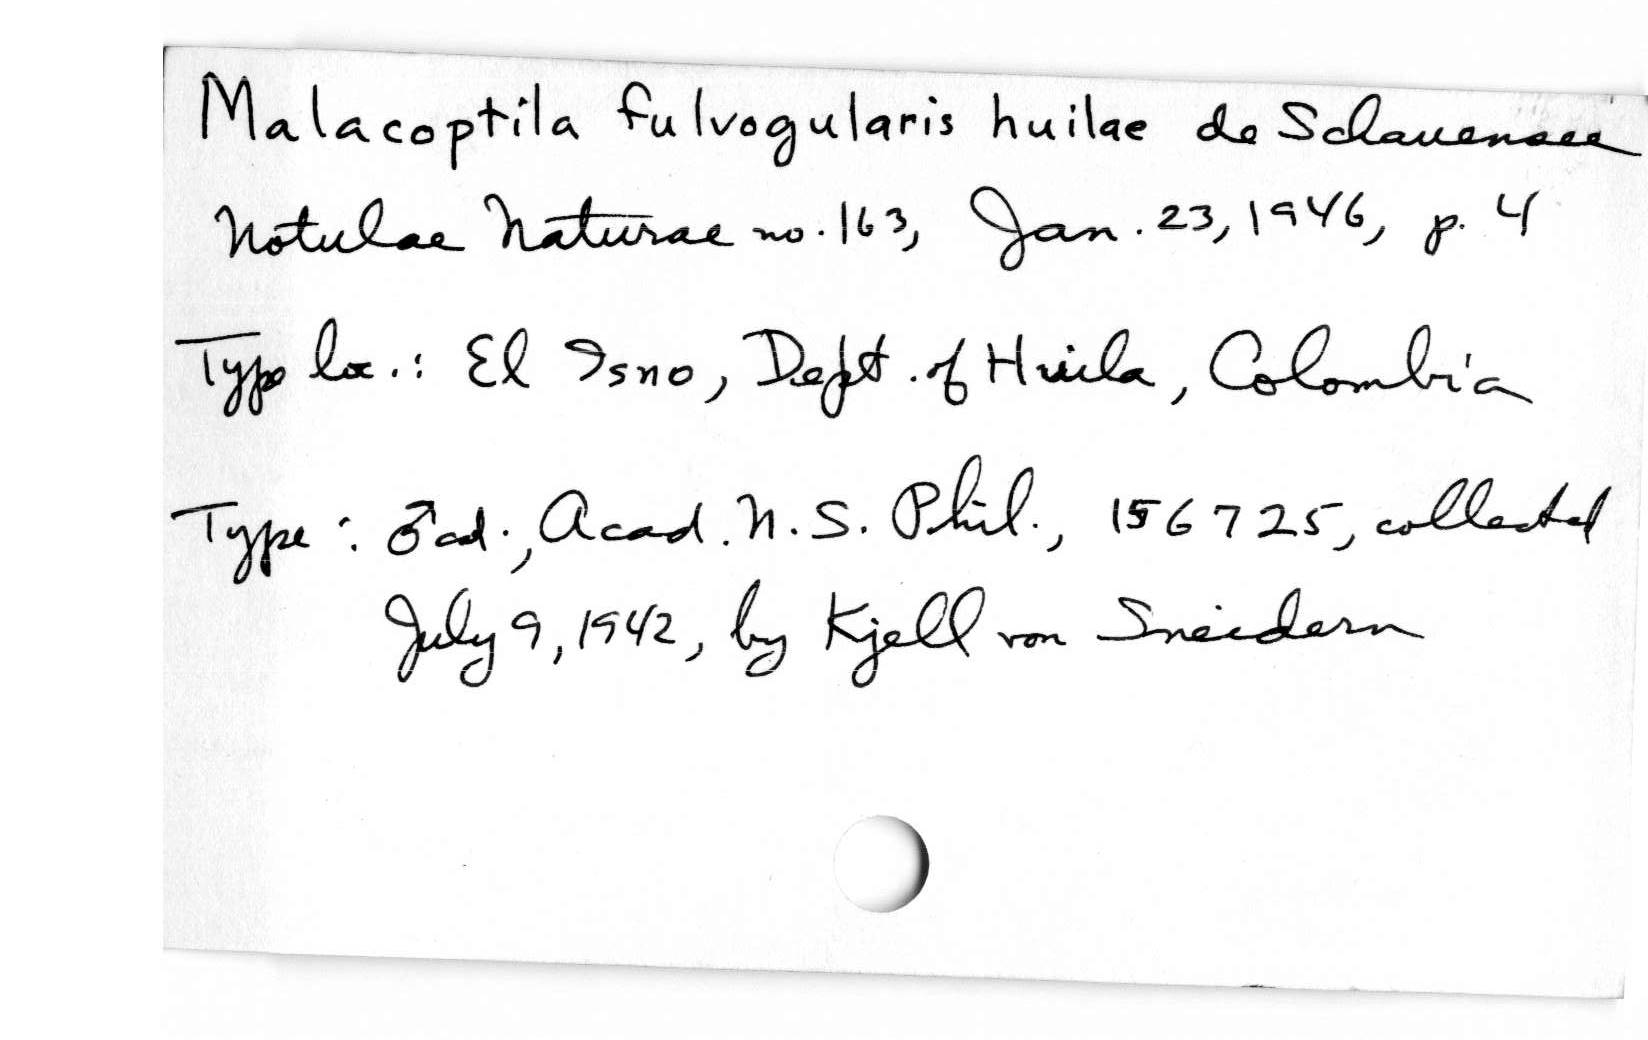 Malacoptila fulvogularis huilae de Schauensee
Notulae Naturae no. 163, Jan. 23, 1946, p. 4
Type loc.: El Isno, Dept. of Huila, Colombia
Type: ♂ ad., Acad. N. S. Phil., 156725, collected
July 9, 1942, by Kjell von Sneidern